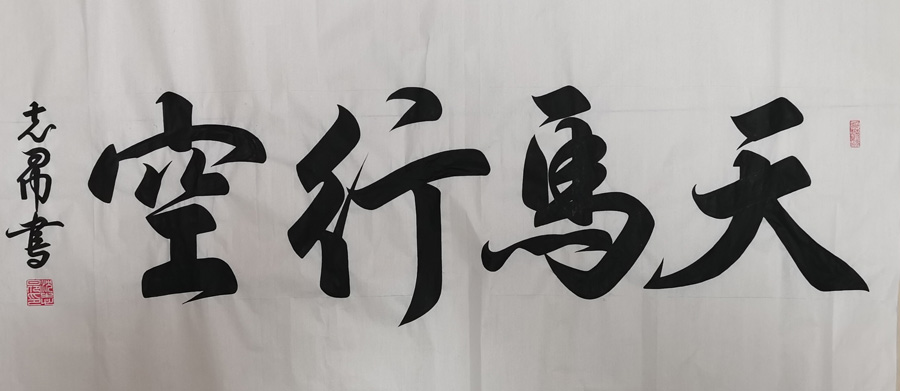 天馬行空
志昂書